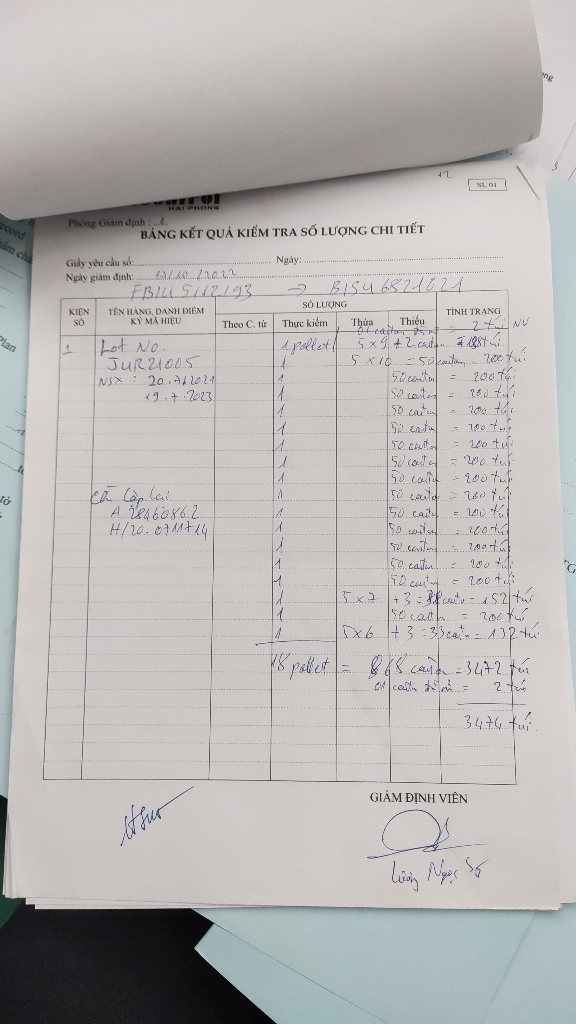 HAI PHONG
SL 01
Phòng Giám định : 1
BẢNG KẾT QUẢ KIỂM TRA SỐ LƯỢNG CHI TIẾT
Giấy yêu cầu số: Ngày:
Ngày giám định: 13/10/2022
FBIU5112193 → BISU6821021
KIỆN SỐ TÊN HÀNG, DANH ĐIỂM KÝ MÃ HIỆU SỐ LƯỢNG TÌNH TRẠNG
Theo C. từ Thực kiểm Thừa Thiếu
01 carton = 2 túi NV
1 Lot No. 1 pallet 5 x 9 + 2 carton = túi
JUR21005 1 5 x 10 = 50 carton = 200 túi
NSX : 20.7.2021 1 50 carton = 200 túi
19.7.2023 1 50 carton = 200 túi
1 50 carton = 200 túi
1 50 carton = 200 túi
1 50 carton = 200 túi
1 50 carton = 200 túi
1 50 carton = 200 túi
1 50 carton = 200 túi
A 28460862 1 50 carton = 200 túi
H/20.0711714 1 50 carton = 200 túi
1 50 carton = 200 túi
1 50 carton = 200 túi
1 50 carton = 200 túi
1 5 x 7 + 3 = 38 carton = 152 túi
1 50 carton = 200 túi
1 5 x 6 + 3 = 33 carton = 132 túi
18 pallet = 868 carton = 3472 túi
01 carton = 2 túi
3474 túi
GIÁM ĐỊNH VIÊN